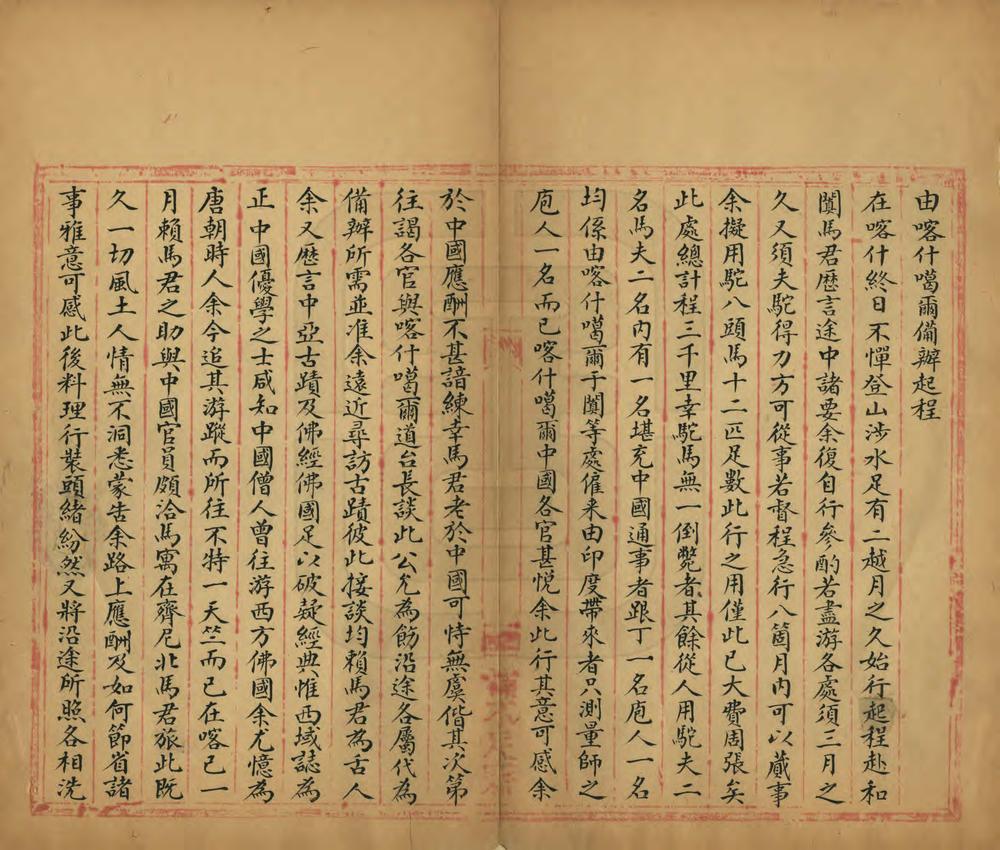 由喀什噶爾備辦起程
在喀什終日不憚登山涉水足有二越月之久始行起程赴和
闐馬君歷言途中諸要余復自行參酌若盡游各處須三月之
久又須夫駝得力方可從事若督程急行八箇月內可以蕆事
余擬用駝八頭馬十二匹足數此行之用僅此已大費周張矣
此處總計程三千里幸駝馬無一倒斃者其餘從人用駝夫二
名馬夫二名內有一名堪充中國通事者跟丁一名庖人一名
均係由喀什噶爾于闐等處僱来由印度帶來者只測量師之
庖人一名而已喀什噶爾中國各官甚悅余此行其意可感余
於中國應酬不甚諳練幸馬君老於中國可恃無虞偕其次第
往謁各官與喀什噶爾道台長談此公允為飭沿途各屬代為
備辦所需並准余遠近尋訪古蹟彼此接談均賴馬君為舌人
余又歷言中亞古蹟及佛經佛國足以破疑經典惟西域誌為
正中國優學之士咸知中國僧人曾往游西方佛國余尤憶為
唐朝時人余今追其游蹤而所往不特一天竺而已在喀已一
月賴馬君之助與中國官員頗洽馬寓在齊尼北馬君旅此既
久一切風土人情無不洞悉蒙告余路上應酬及如何節省諸
事雅意可感此後料理行裝頭緒紛然又將沿途所照各相洗